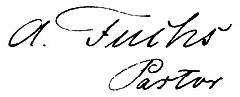 A. Fuchs
Pastor